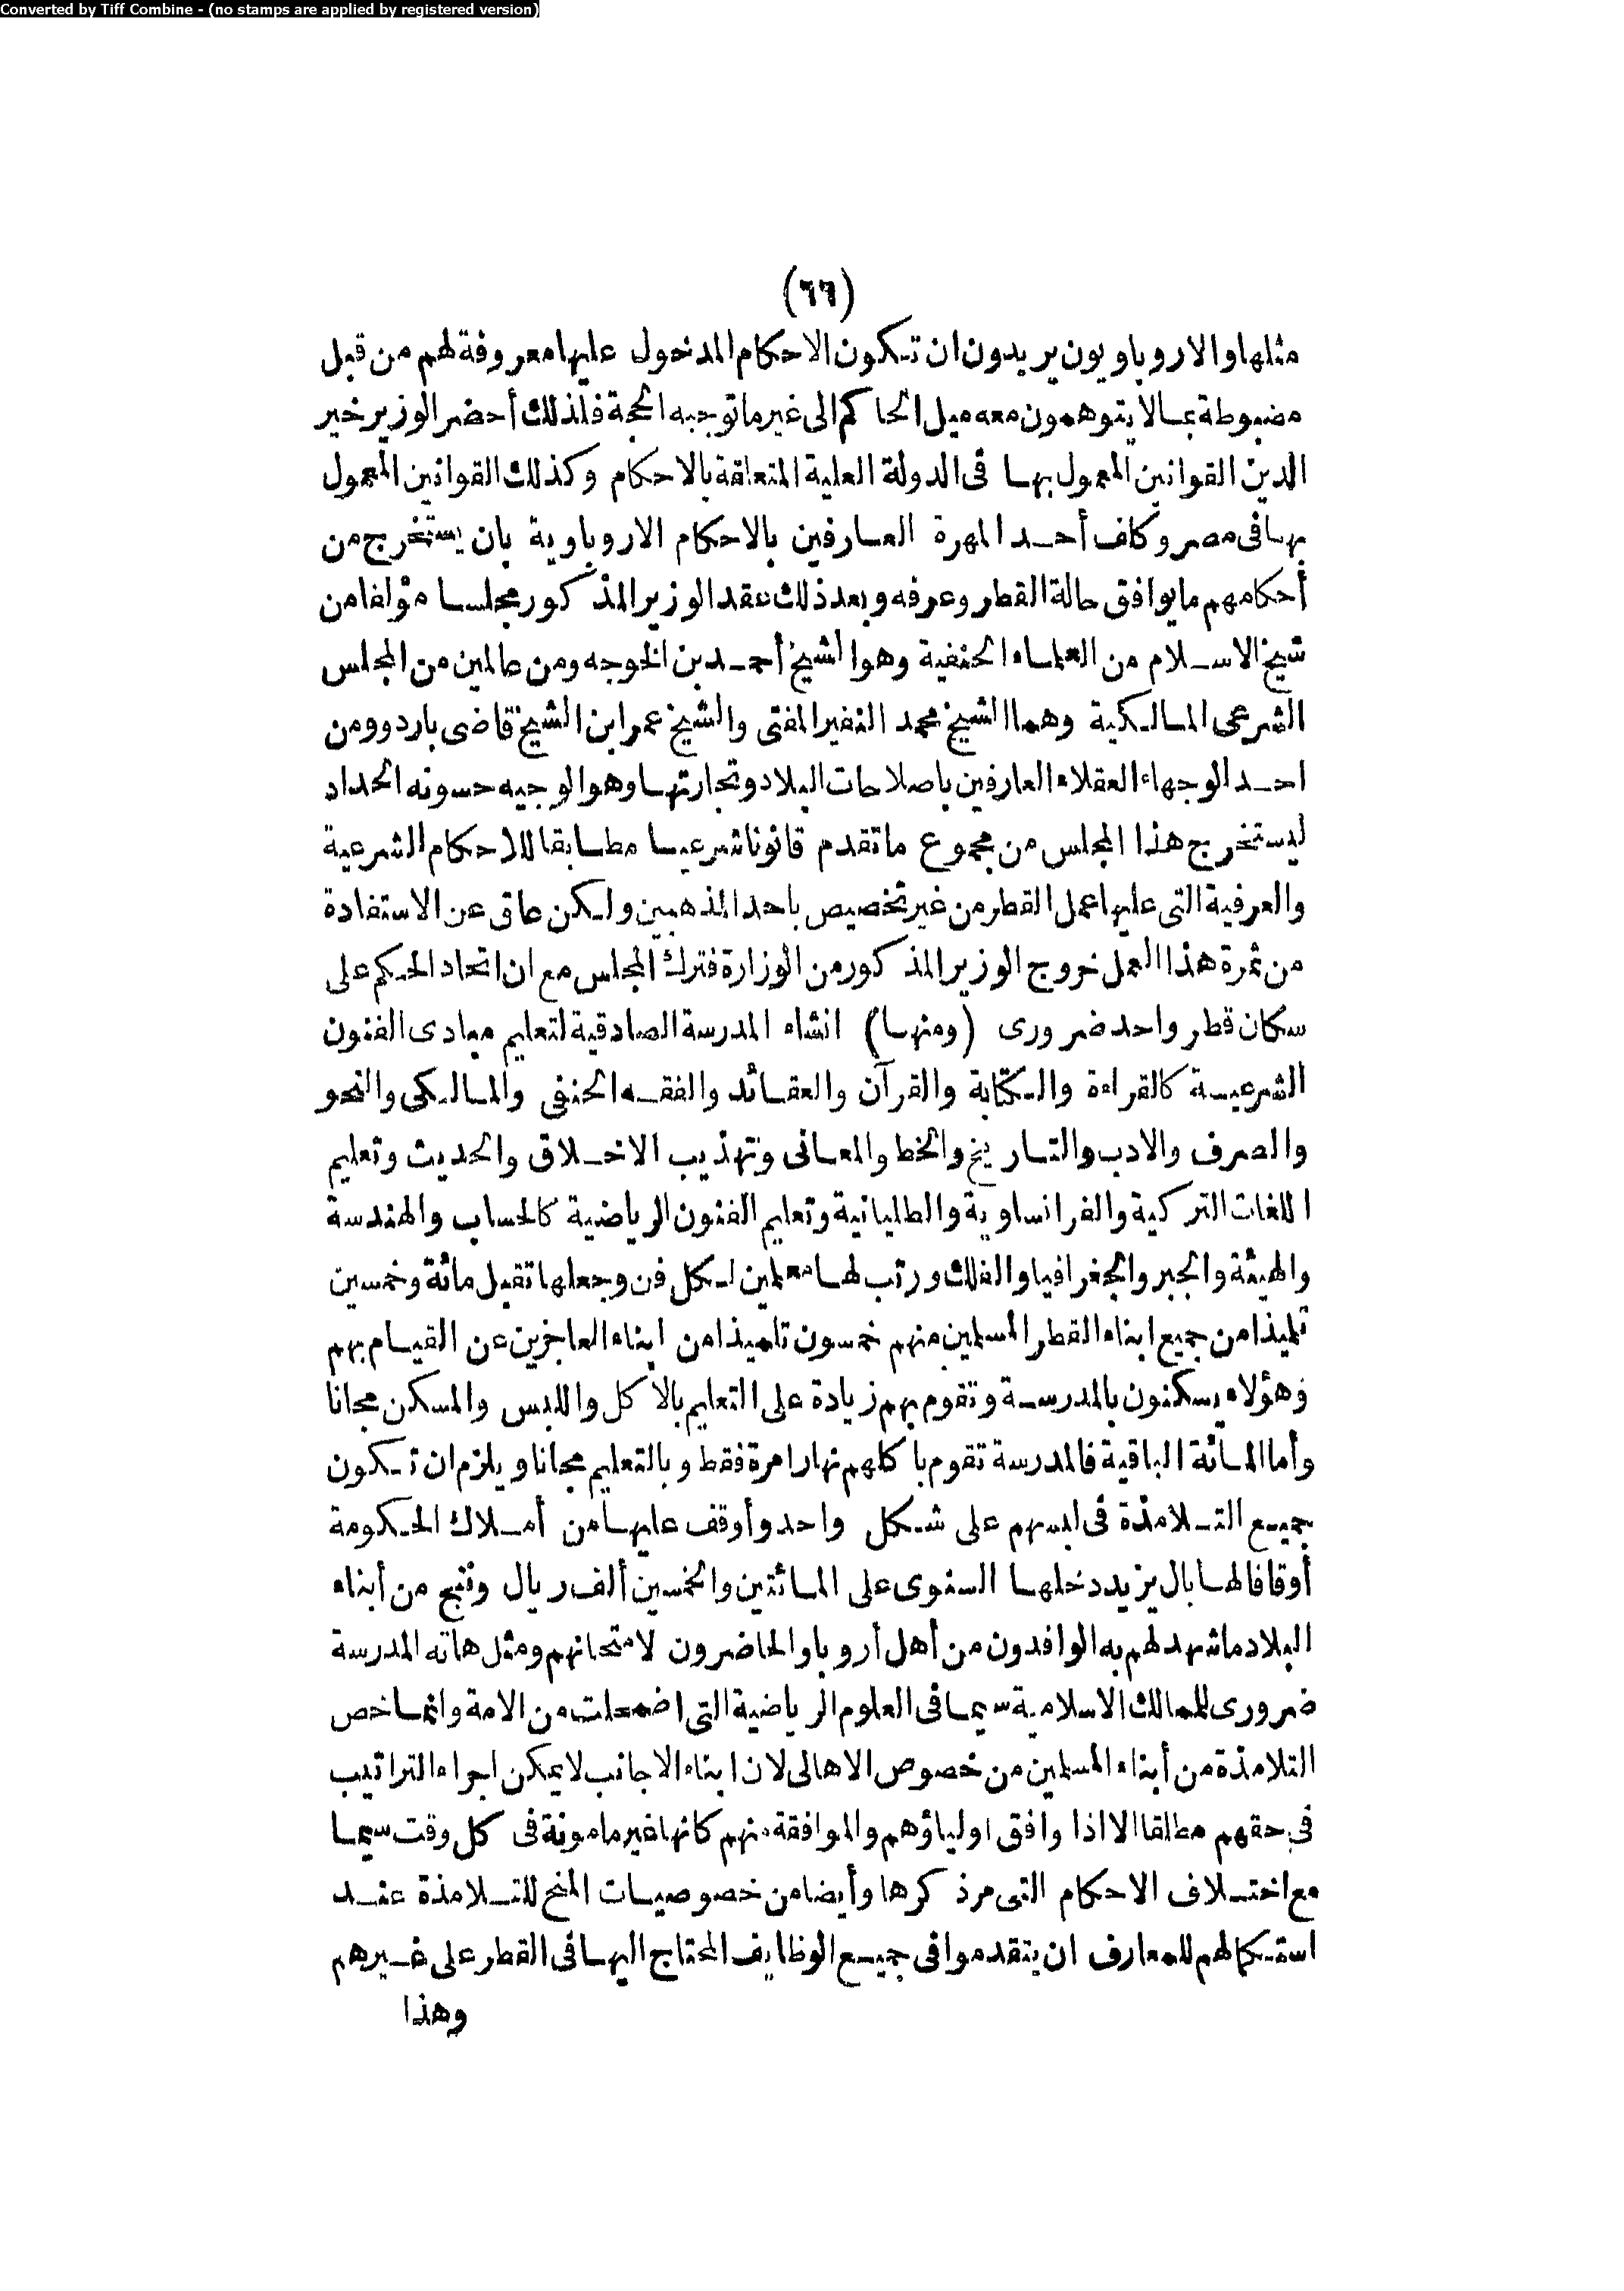 Converted by Tiff Combine - (no stamps are applied by registered version)
(٦٦)
مثلها والاروباويون يريدون ان تكون الاحكام المدخول عليها معروفة لهم من قبل
مضبوطة بما لا يتوهمون معه ميل الحاكم الى غير ما توجبه الحجة فلذلك أحضر الوزير خير
الدين القوانين المعمول بها فى الدولة العلية المتعلقة بالاحكام وكذلك القوانين المعمول
بها فى مصر وكلف أحد المهرة العارفين بالاحكام الاروباوية بان يستخرج من
أحكامهم ما يوافق حالة القطر وعرفه وبعد ذلك عقد الوزير المذكور مجلسا مؤلفا من
شيخ الاسلام من العلماء الحنفية وهو الشيخ أحمد بن الخوجه ومن عالمين من المجلس
الشرعى المالكية وهما الشيخ محمد النفير المفتى والشيخ عمر ابن الشيخ قاضى باردو ومن
احد الوجهاء العقلاء العارفين باصلاحات البلاد وتجارتها وهو الوجيه حسونه الحداد
ليستخرج هذا المجلس من مجموع ما تقدم قانونا شرعيا مطابقا للاحكام الشرعية
والعرفية التى عليها عمل القطر من غير تخصيص باحد المذهبين ولكن عاق عن الاستفادة
من ثمرة هذا العمل خروج الوزير المذكور من الوزارة فترك المجلس مع ان اتحاد الحكم على
سكان قطر واحد ضرورى (ومنها) انشاء المدرسة الصادقية لتعليم مبادى الفنون
الشرعية كالقراءة والكتابة والقرآن والعقائد والفقه الحنفى والمالكى والنحو
والصرف والادب والتاريخ والخط والمعانى وتهذيب الاخلاق والحديث وتعليم
اللغات التركية والفرانساوية والطليانية وتعليم الفنون الرياضية كالحساب والهندسة
والهيئة والجبر والجغرافيا والفلك ورتب لها معلمين لكل فن وجعلها تقبل مائة وخمسين
تلميذا من جميع ابناء القطر المسلمين منهم خمسون تلميذا من ابناء العاجزين عن القيام بهم
وهؤلاء يسكنون بالمدرسة وتقوم بهم زيادة على التعليم بالاكل واللبس والمسكن مجانا
وأما المائة الباقية فالمدرسة تقوم باكلهم نهارا مرة فقط وبالتعليم مجانا ويلزم ان تكون
جميع التلامذة فى لبسهم على شكل واحد وأوقف عليها من أملاك الحكومة
أوقافا لها بال يزيد دخلها السنوى على المائتين والخمسين ألف ريال ونتج من أبناء
البلاد ما شهد لهم به الوافدون من أهل أروبا والحاضرون لامتحانهم ومثل هاته المدرسة
ضرورى للممالك الاسلامية سيما فى العلوم الرياضية التى اضمحلت من الامة وانما خص
التلامذة من أبناء المسلمين من خصوص الاهالى لان ابناء الاجانب لا يمكن اجراء التراتيب
فى حقهم مطلقا الا اذا وافق اولياؤهم والموافقة منهم كانها غير مامونة فى كل وقت سيما
مع اختلاف الاحكام التى مر ذكرها وأيضا من خصوصيات المنح للتلامذة عند
استكمالهم للمعارف ان يتقدموا فى جميع الوظايف المحتاج اليها فى القطر على غيرهم
وهذا